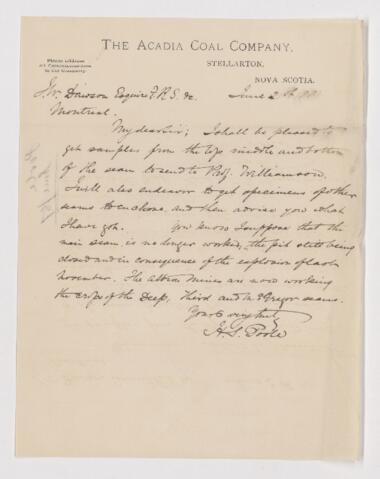 THE ACADIA COAL COMPANY.
Please address
all Communications
to the Company
STELLARTON,
NOVA SCOTIA.
June 2 1881
J. W. Dawson Esquire F.R.S. &c.
Montreal.
My dear Sir; I shall be pleased to
get samples from the top middle and bottom
of the seam to send to Prof. Williamson.
I will also endeavour to get specimens of other
seams to enclose, and then advise you what
I have got. You know I suppose that the
main seam, is no longer worked, the pit still being
closed and in consequence of the explosion of last
November. The Albion Mines are now working
the crops of the Deep, Third and McGregor seams.
Yours very truly
H. S. Poole